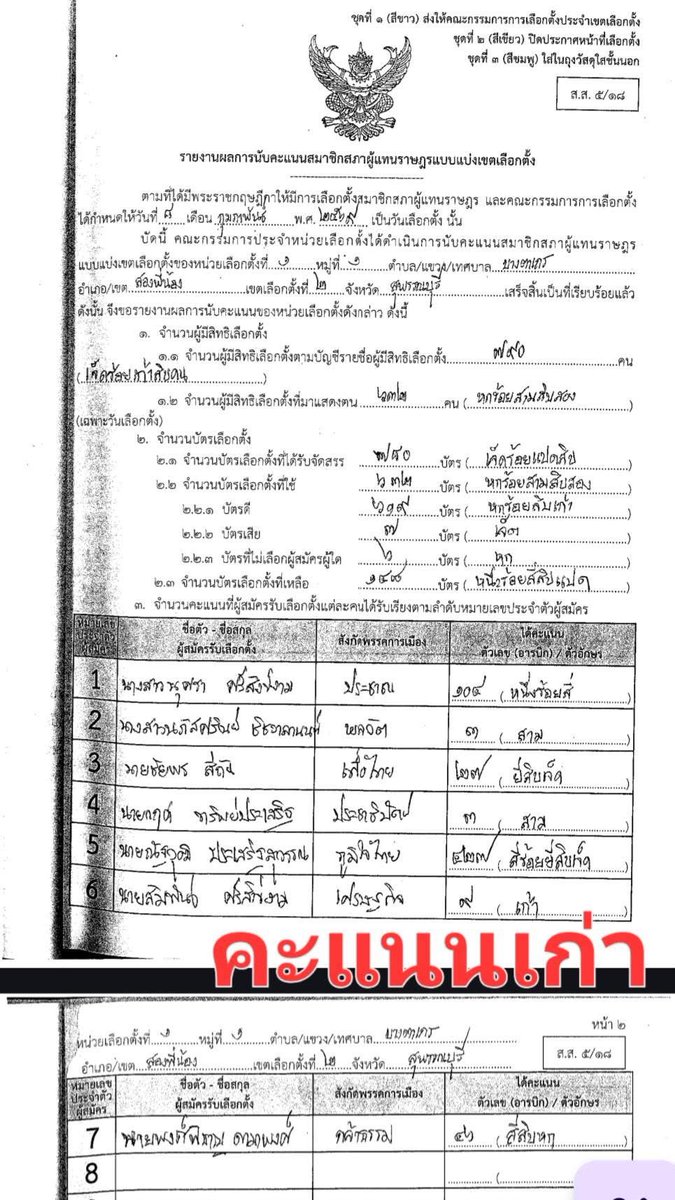 ชุดที่ ๑ (สีขาว) ส่งให้คณะกรรมการการเลือกตั้งประจำเขตเลือกตั้ง
ชุดที่ ๒ (สีเขียว) ปิดประกาศหน้าที่เลือกตั้ง
ชุดที่ ๓ (สีชมพู) ใส่ในถุงวัสดุใสชั้นนอก
ส.ส. ๕/๑๘
รายงานผลการนับคะแนนสมาชิกสภาผู้แทนราษฎรแบบแบ่งเขตเลือกตั้ง
ตามที่ได้มีพระราชกฤษฎีกาให้มีการเลือกตั้งสมาชิกสภาผู้แทนราษฎร และคณะกรรมการการเลือกตั้ง
ได้กำหนดให้วันที่ ๘ เดือน กุมภาพันธ์ พ.ศ. ๒๕๖๙ เป็นวันเลือกตั้ง นั้น
บัดนี้ คณะกรรมการประจำหน่วยเลือกตั้งได้ดำเนินการนับคะแนนสมาชิกสภาผู้แทนราษฎร
แบบแบ่งเขตเลือกตั้งของหน่วยเลือกตั้งที่ ๑ หมู่ที่ ๑ ตำบล/แขวง/เทศบาล บางตาเถร
อำเภอ/เขต สองพี่น้อง เขตเลือกตั้งที่ ๒ จังหวัด สุพรรณบุรี เสร็จสิ้นเป็นที่เรียบร้อยแล้ว
ดังนั้น จึงขอรายงานผลการนับคะแนนของหน่วยเลือกตั้งดังกล่าว ดังนี้
๑. จำนวนผู้มีสิทธิเลือกตั้ง
๑.๑ จำนวนผู้มีสิทธิเลือกตั้งตามบัญชีรายชื่อผู้มีสิทธิเลือกตั้ง ๗๙๐ คน
(เจ็ดร้อยเก้าสิบคน)
๑.๒ จำนวนผู้มีสิทธิเลือกตั้งที่มาแสดงตน ๖๓๒ คน (หกร้อยสามสิบสอง)
(เฉพาะวันเลือกตั้ง)
๒. จำนวนบัตรเลือกตั้ง
๒.๑ จำนวนบัตรเลือกตั้งที่ได้รับจัดสรร ๗๘๐ บัตร (เจ็ดร้อยแปดสิบ)
๒.๒ จำนวนบัตรเลือกตั้งที่ใช้ ๖๓๒ บัตร (หกร้อยสามสิบสอง)
๒.๒.๑ บัตรดี ๖๑๙ บัตร (หกร้อยสิบเก้า)
๒.๒.๒ บัตรเสีย ๗ บัตร (เจ็ด)
๒.๒.๓ บัตรที่ไม่เลือกผู้สมัครผู้ใด ๖ บัตร (หก)
๒.๓ จำนวนบัตรเลือกตั้งที่เหลือ ๑๔๘ บัตร (หนึ่งร้อยสี่สิบแปด)
๓. จำนวนคะแนนที่ผู้สมัครรับเลือกตั้งแต่ละคนได้รับเรียงตามลำดับหมายเลขประจำตัวผู้สมัคร
หมายเลขประจำตัวผู้สมัคร ชื่อตัว - ชื่อสกุล ผู้สมัครรับเลือกตั้ง สังกัดพรรคการเมือง ได้คะแนน ตัวเลข (อารบิก) / ตัวอักษร
1 นางสาว ประชาชน ๑๐๔ (หนึ่งร้อยสี่)
2 นางสาว ๓ (สาม)
3 นายชัยพร เพื่อไทย ๒๗ (ยี่สิบเจ็ด)
4 นาย ประชาธิปัตย์ ๓ (สาม)
5 นาย ภูมิใจไทย ๔๒๗ (สี่ร้อยยี่สิบเจ็ด)
6 นายสัมพันธ์ เศรษฐกิจ ๙ (เก้า)
คะแนนเก่า
หน้า ๒
หน่วยเลือกตั้งที่ ๑ หมู่ที่ ๑ ตำบล/แขวง/เทศบาล บางตาเถร
อำเภอ/เขต สองพี่น้อง เขตเลือกตั้งที่ ๒ จังหวัด สุพรรณบุรี
ส.ส. ๕/๑๘
หมายเลขประจำตัวผู้สมัคร ชื่อตัว - ชื่อสกุล ผู้สมัครรับเลือกตั้ง สังกัดพรรคการเมือง ได้คะแนน ตัวเลข (อารบิก) / ตัวอักษร
7 นาย กล้าธรรม ๔๖ (สี่สิบหก)
8